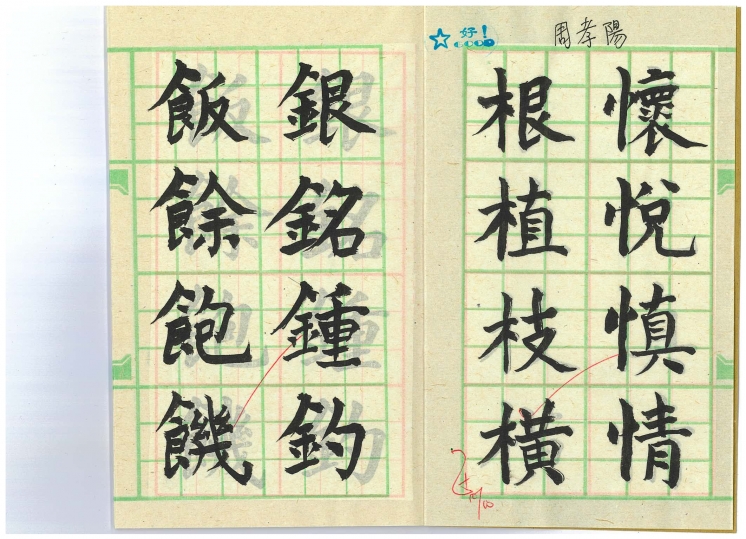 周孝陽
好!
GOOD
懷悅慎情
根植枝橫
銀銘鍾鈞
飯餘飽饑